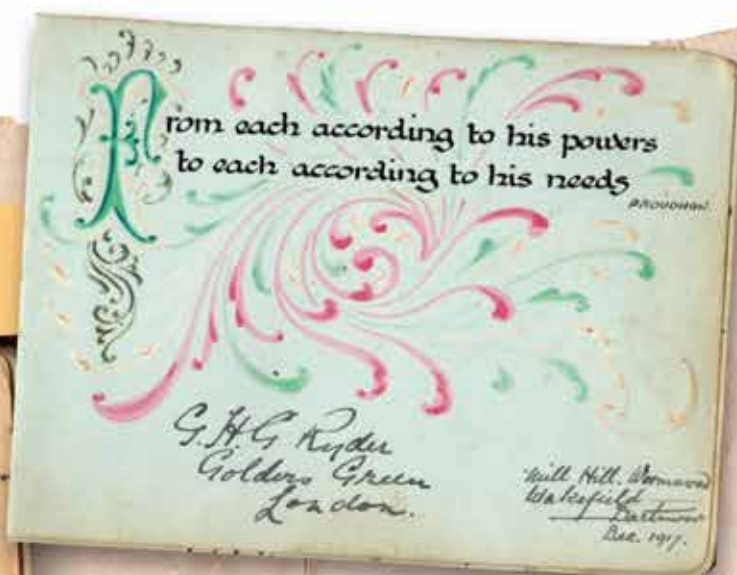 From each according to his powers
to each according to his needs
PROUDHON.
G.H.G Ryder
Golders Green
London.
Mill Hill. Wormwood
Wakefield
Dartmoor
Dec. 1917.